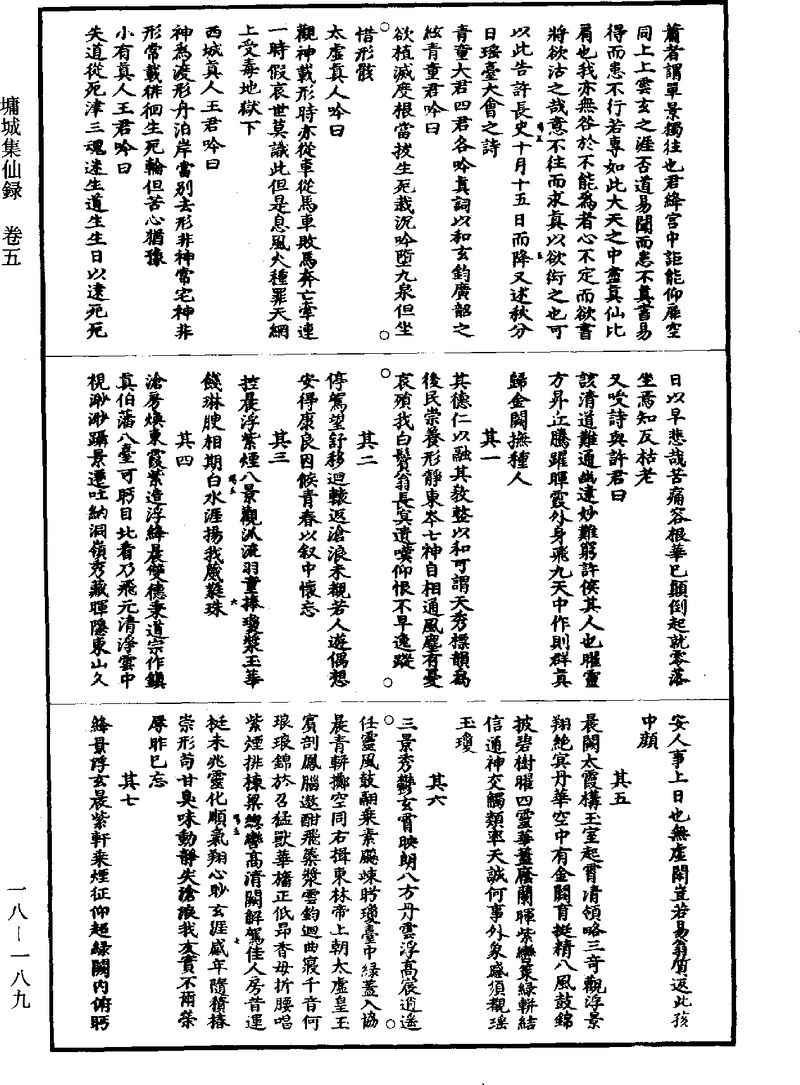 墉城集仙録　卷五
一八—一八九
蕭者謂單景獨往也君絳宮中詎能仰飛空
同上上雲玄之涯否道易聞而患不真書易
得而患不行若專如此大天之中盡真仙比
肩也我亦無咎於不能為者心不定而欲書
將欲沽之哉意不往而求真以欲衒之也可
以此告許長史十月十五日而降又述秋分
日瑶臺大會之詩
青童大君四君各吟真詞以和玄鈞廣韶之
絃青童君吟曰
欲植滅度根當拔生死栽沉吟墮九泉但坐
惜形骸
太虛真人吟曰
觀神載形時亦從車從馬車敗馬奔亡牽連
一時假哀世莫識此但是息風火種罪天網
上受毒地獄下
西城真人王君吟曰
神為渡形舟泊岸當别去形非神常宅神非
形常載徘徊生死輪但苦心猶豫
小有真人王君吟曰
失道從死津三魂迷生道生生日以遠死死
日以早悲哉苦痛容根華已顛倒起就零落
坐焉知反枯老
又吟詩與許君曰
該清道難通幽遠妙難窮許侯其人也曜靈
方昇丘騰躍暉霞外身飛九天中作則群真
歸金闕撫種人
其一
其德仁以融其教整以和可謂天秀標韻為
後民崇養形靜東岑七神自相通風塵有憂
哀殞我白鬢翁長冥遺嘆仰恨不早逸蹤
其二
停駕望舒移迴轅返滄浪未覩若人遊偶想
安得康良因候青春以叙中懷忘
其三
控晨浮紫煙八景觀汎流羽童捧瓊漿玉華
餞琳腴相期白水涯揚我葳蕤珠
其四
滄房煥東霞紫造浮絳晨雙德秉道宗作鎮
真伯藩八臺可眄目北看乃飛元清淨雲中
視渺渺躡景遷吐納洞嶺秀藏暉隱東山久
安人事上日也無虛閑豈若易翁質返此孩
中顏
其五
晨闕太霞構玉室起霄清領略三奇觀浮景
翔絶冥丹華空中有金闕育挺精八風鼓錦
披碧樹曜四靈華蓋廕蘭暉紫轡策緑軿結
信通神交觸類率天誠何事外象感須覩瑶
玉瓊
其六
三景秀鬱玄霄映朗八方丹雲浮高宸逍遥
任靈風鼓翮乘素飈竦眄瓊臺中緑蓋入協
晨青軿擲空同右揖東林帝上朝太虛皇玉
賓剖鳳腦遨酣飛蘂漿雲鈞迴曲寢千音何
琅琅錦旂召猛獸華幡正低昂香母折腰唱
紫煙排棟梁總轡高清闕解駕佳人房昔運
挺未兆靈化順氣翔心眇玄涯感年隨積椿
崇形苟甘臭味動靜失滄浪我友實不兩榮
辱昨已忘
其七
絳景浮玄晨紫軒乘煙征仰超緑闕内俯眄